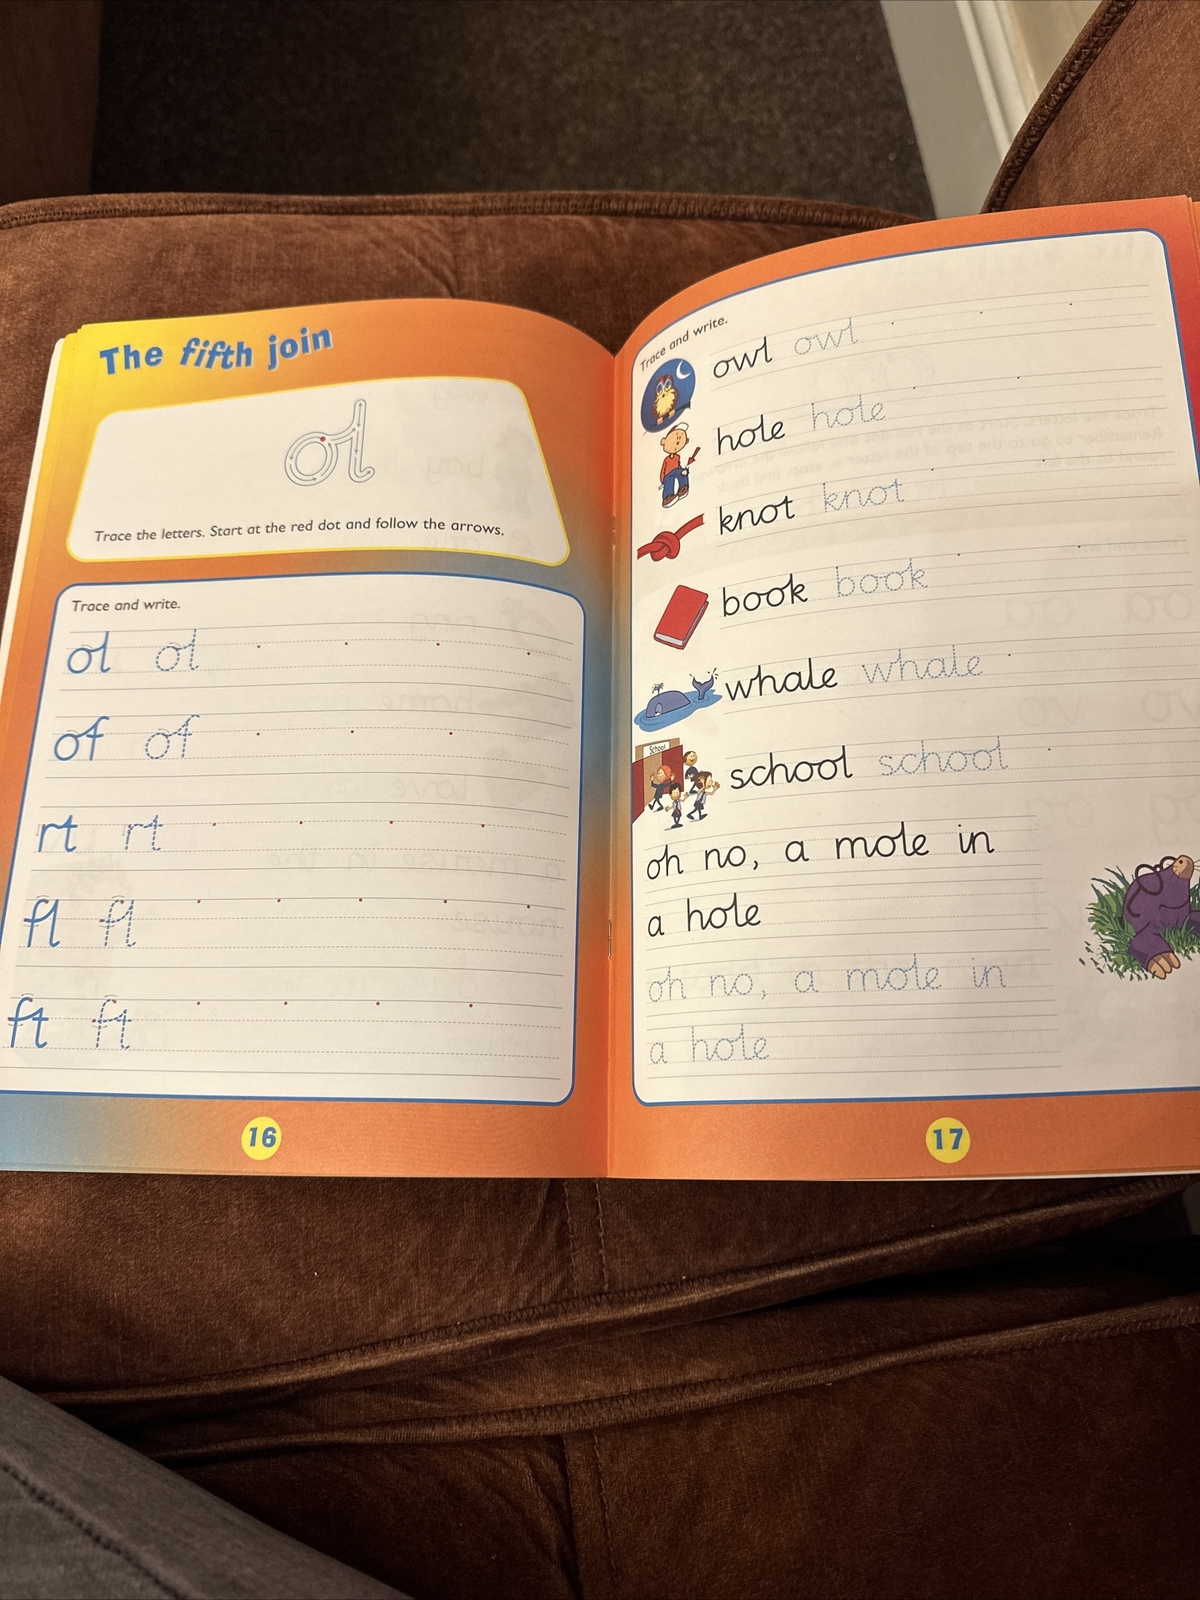 The fifth join
ol
Trace the letters. Start at the red dot and follow the arrows.
Trace and write.
ol ol
of of
rt rt
fl fl
ft ft
16
Trace and write.
owl owl
hole hole
knot knot
book book
whale whale
School
school school
oh no, a mole in
a hole
oh no, a mole in
a hole
17